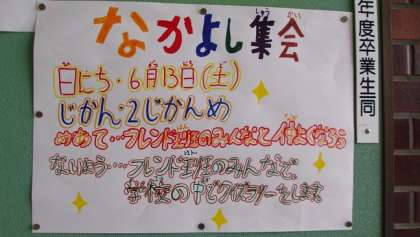 なかよし集会
しゅう かい
日にち・6月13日(土)
じかん・2じかんめ
めあて…フレンド班のみんなと仲よくなろう
ないよう…フレンド班のみんなで、
はん
学校の中でクイズラリーをします。
年度卒業生同